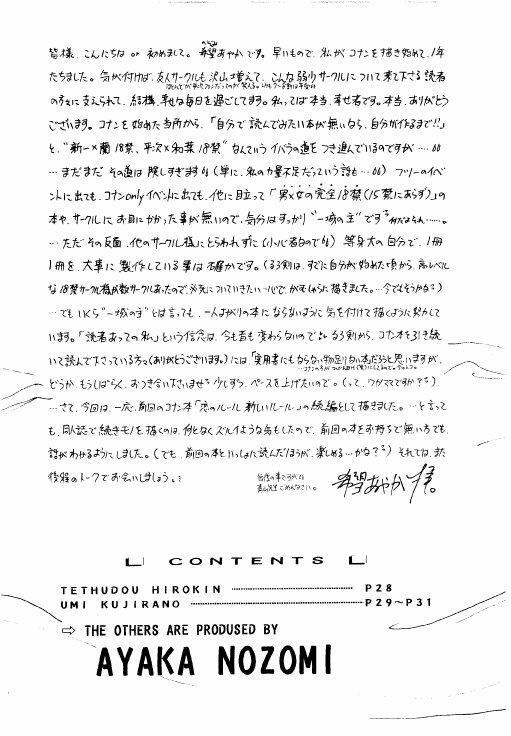 皆様、こんにちは or 初めまして。希望あやかです。早いもので、私がコナンを描き始めて、1年
たちました。気が付けば、友人サークルも沢山増えて、こんな弱少サークルについて来て下さる読者
の方々に支えられて、結構、幸せな毎日を過ごしてます。私ってば本当、幸せ者です。本当、ありがとう
ございます。コナンを始めた当所から、「自分で読んでみたい本が無いなら、自分が作るまで!!」
と、"新一×蘭18禁、平次×和葉18禁"なんていうイバラの道をつき進んでいるのですが…。
…まだまだその道は険しすぎます(単に、私の力量不足だっていう話も…)フツーのイベ
ントに出ても、コナンonlyイベントに出ても、他に目立って「男×女の完全18禁(15禁にあらず)」の
本や、サークルにお目にかかった事が無いので、気分はすっかり"一城の主"です
…ただその反面、他のサークル様にとらわれずに(小心者なので)等身大の自分で、1冊
1冊を、大事に製作している事は確かです。(るろ剣は、すでに自分が始めた頃から、高レベル
な18禁サークル様が数サークルあったので、必死についていきたい一心で、がむしゃらに描きました。…今でもそうかな?)
…でもいくら"一城の主"とは言っても、一人よがりの本にならないように気を付けて描くように努力して
います。「読者あっての私」という信念は、今も昔も変わらないので るろ剣から、コナン本を引き続
いて読んで下さっている方々(ありがとうございます。)には、「実用書にもならない物足りない本だろうと思いますが、
どうか、もうしばらく、おつき合い下さいませ 少しずつ、ペースを上げたいので。(って、ワガママですか?)
…さて、今回は、一応、前回のコナン本「恋のルール新しいルール」の続編として描きました。…と言って
も、同人誌で続きモノを描くのは、何となくズルイような気もしたので、前回の本をお持ちで無い方でも、
話がわかるようにしました。(でも、前回の本といっしょに読んだほうが、楽しめる…かな?)それでは、また
後程のトークでお会いしましょう。
希望あやか拝。
CONTENTS
TETHUDOU HIROKIN ………… P28
UMI KUJIRANO ………… P29～P31
⇨ THE OTHERS ARE PRODUSED BY
AYAKA NOZOMI